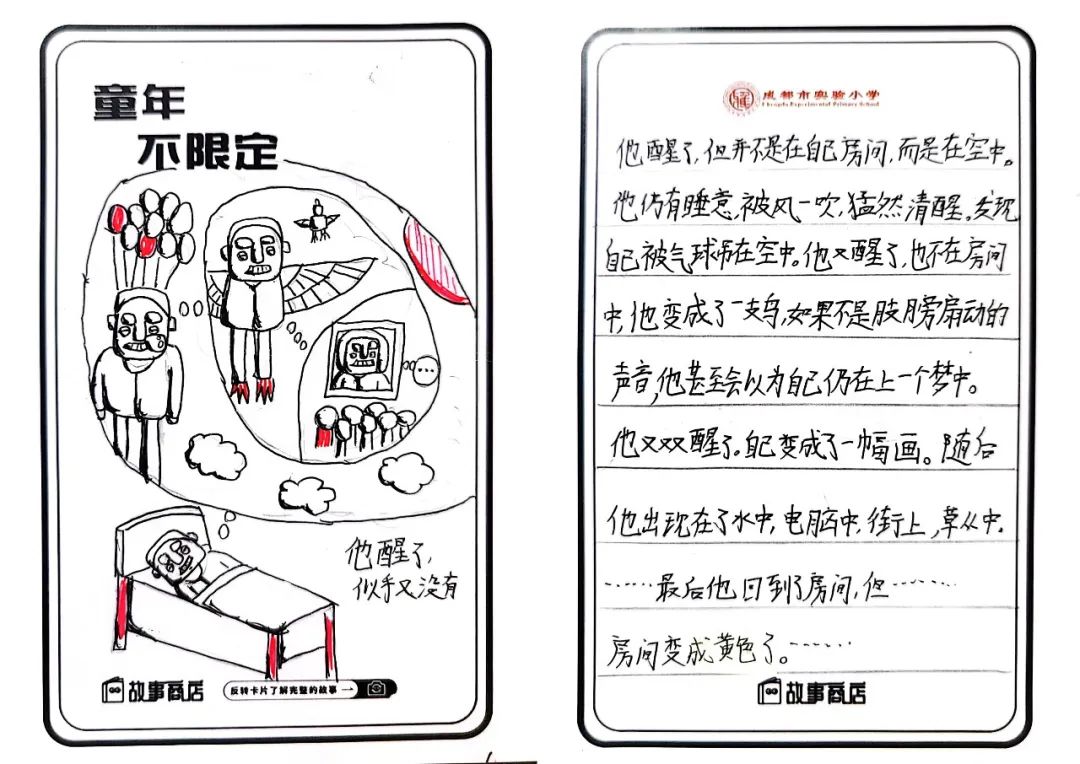 童年
不限定
他醒了,
似乎又没有
故事商店
反转卡片了解完整的故事
成都市实验小学
Chengdu Experimental Primary School
他醒了,但并不是在自己房间,而是在空中。
他仍有睡意,被风一吹,猛然清醒。发现
自己被气球吊在空中。他又醒了,也不在房间
中,他变成了一支鸟,如果不是肢膀扇动的
声音,他甚至会以为自己仍在上一个梦中。
他又双醒了。自己变成了一幅画。随后
他出现在了水中,电脑中,街上,草丛中.
……最后他回到了房间,但……
房间变成黄色了。……
故事商店